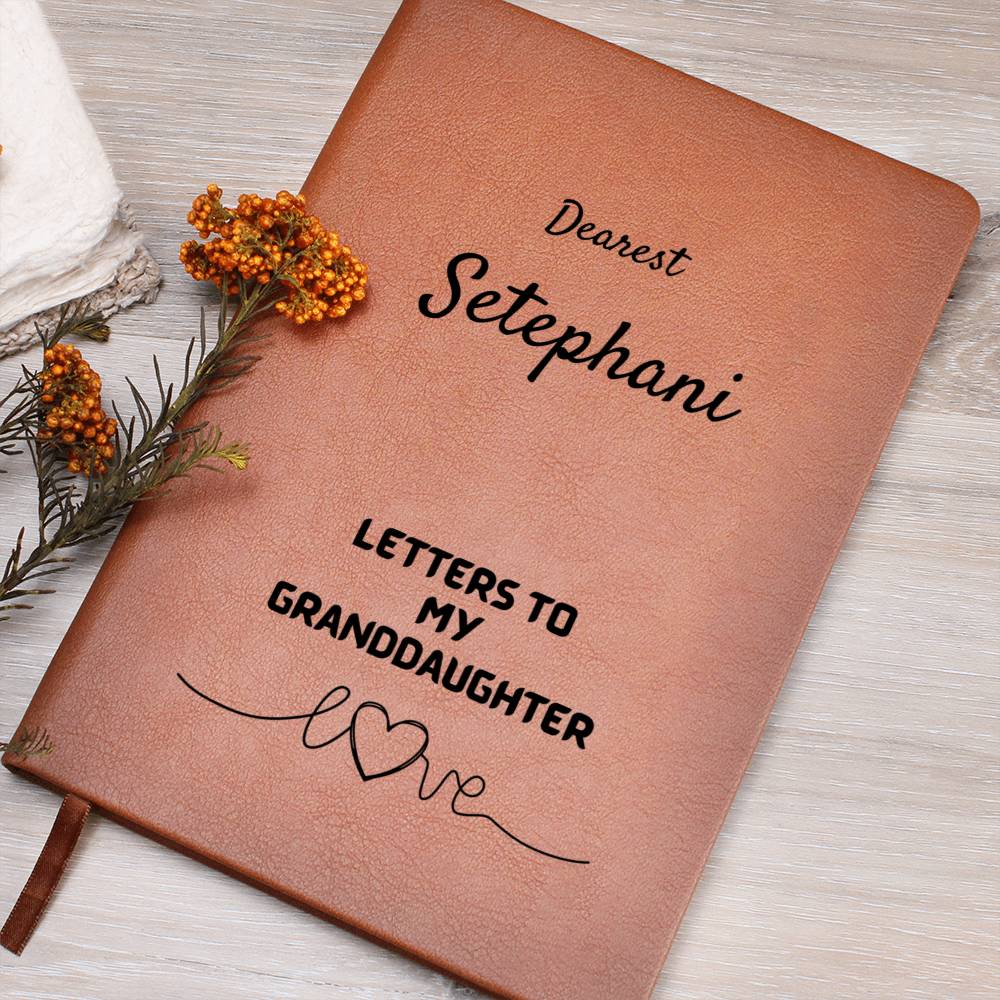 Dearest
Setephani
LETTERS TO
MY
GRANDDAUGHTER
love